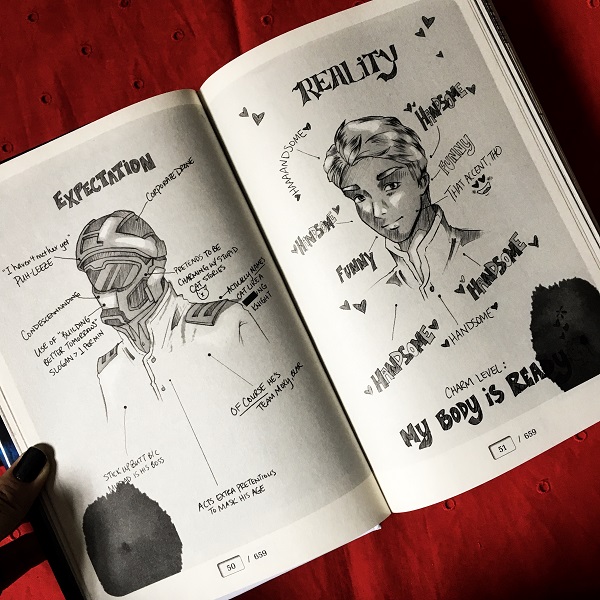 EXPECTATION
CORPORATE DRONE
"I haven't met her yet"
PUH-LEEZE
PRETENDS TO BE
CHARMING W/ STUPID
CAT STORIES
CONDESCENDING
USE OF "BUILDING
BETTER TOMORROWS"
SLOGAN > 1 PER MIN
ACTUALLY
CAT LIKE A
KNIGHT
OF COURSE HE'S
TEAM
STICK UP BUTT B/C
IS HIS BOSS
ACTS EXTRA PRETENTIOUS
TO MASK HIS AGE
50 / 659
REALITY
HAAAANDSOME
HANDSOME
FUNNY
THAT ACCENT THO
HANDSOME
FUNNY
HANDSOME
HANDSOME
HANDSOME
CHARM LEVEL:
MY BODY IS READY
51 / 659